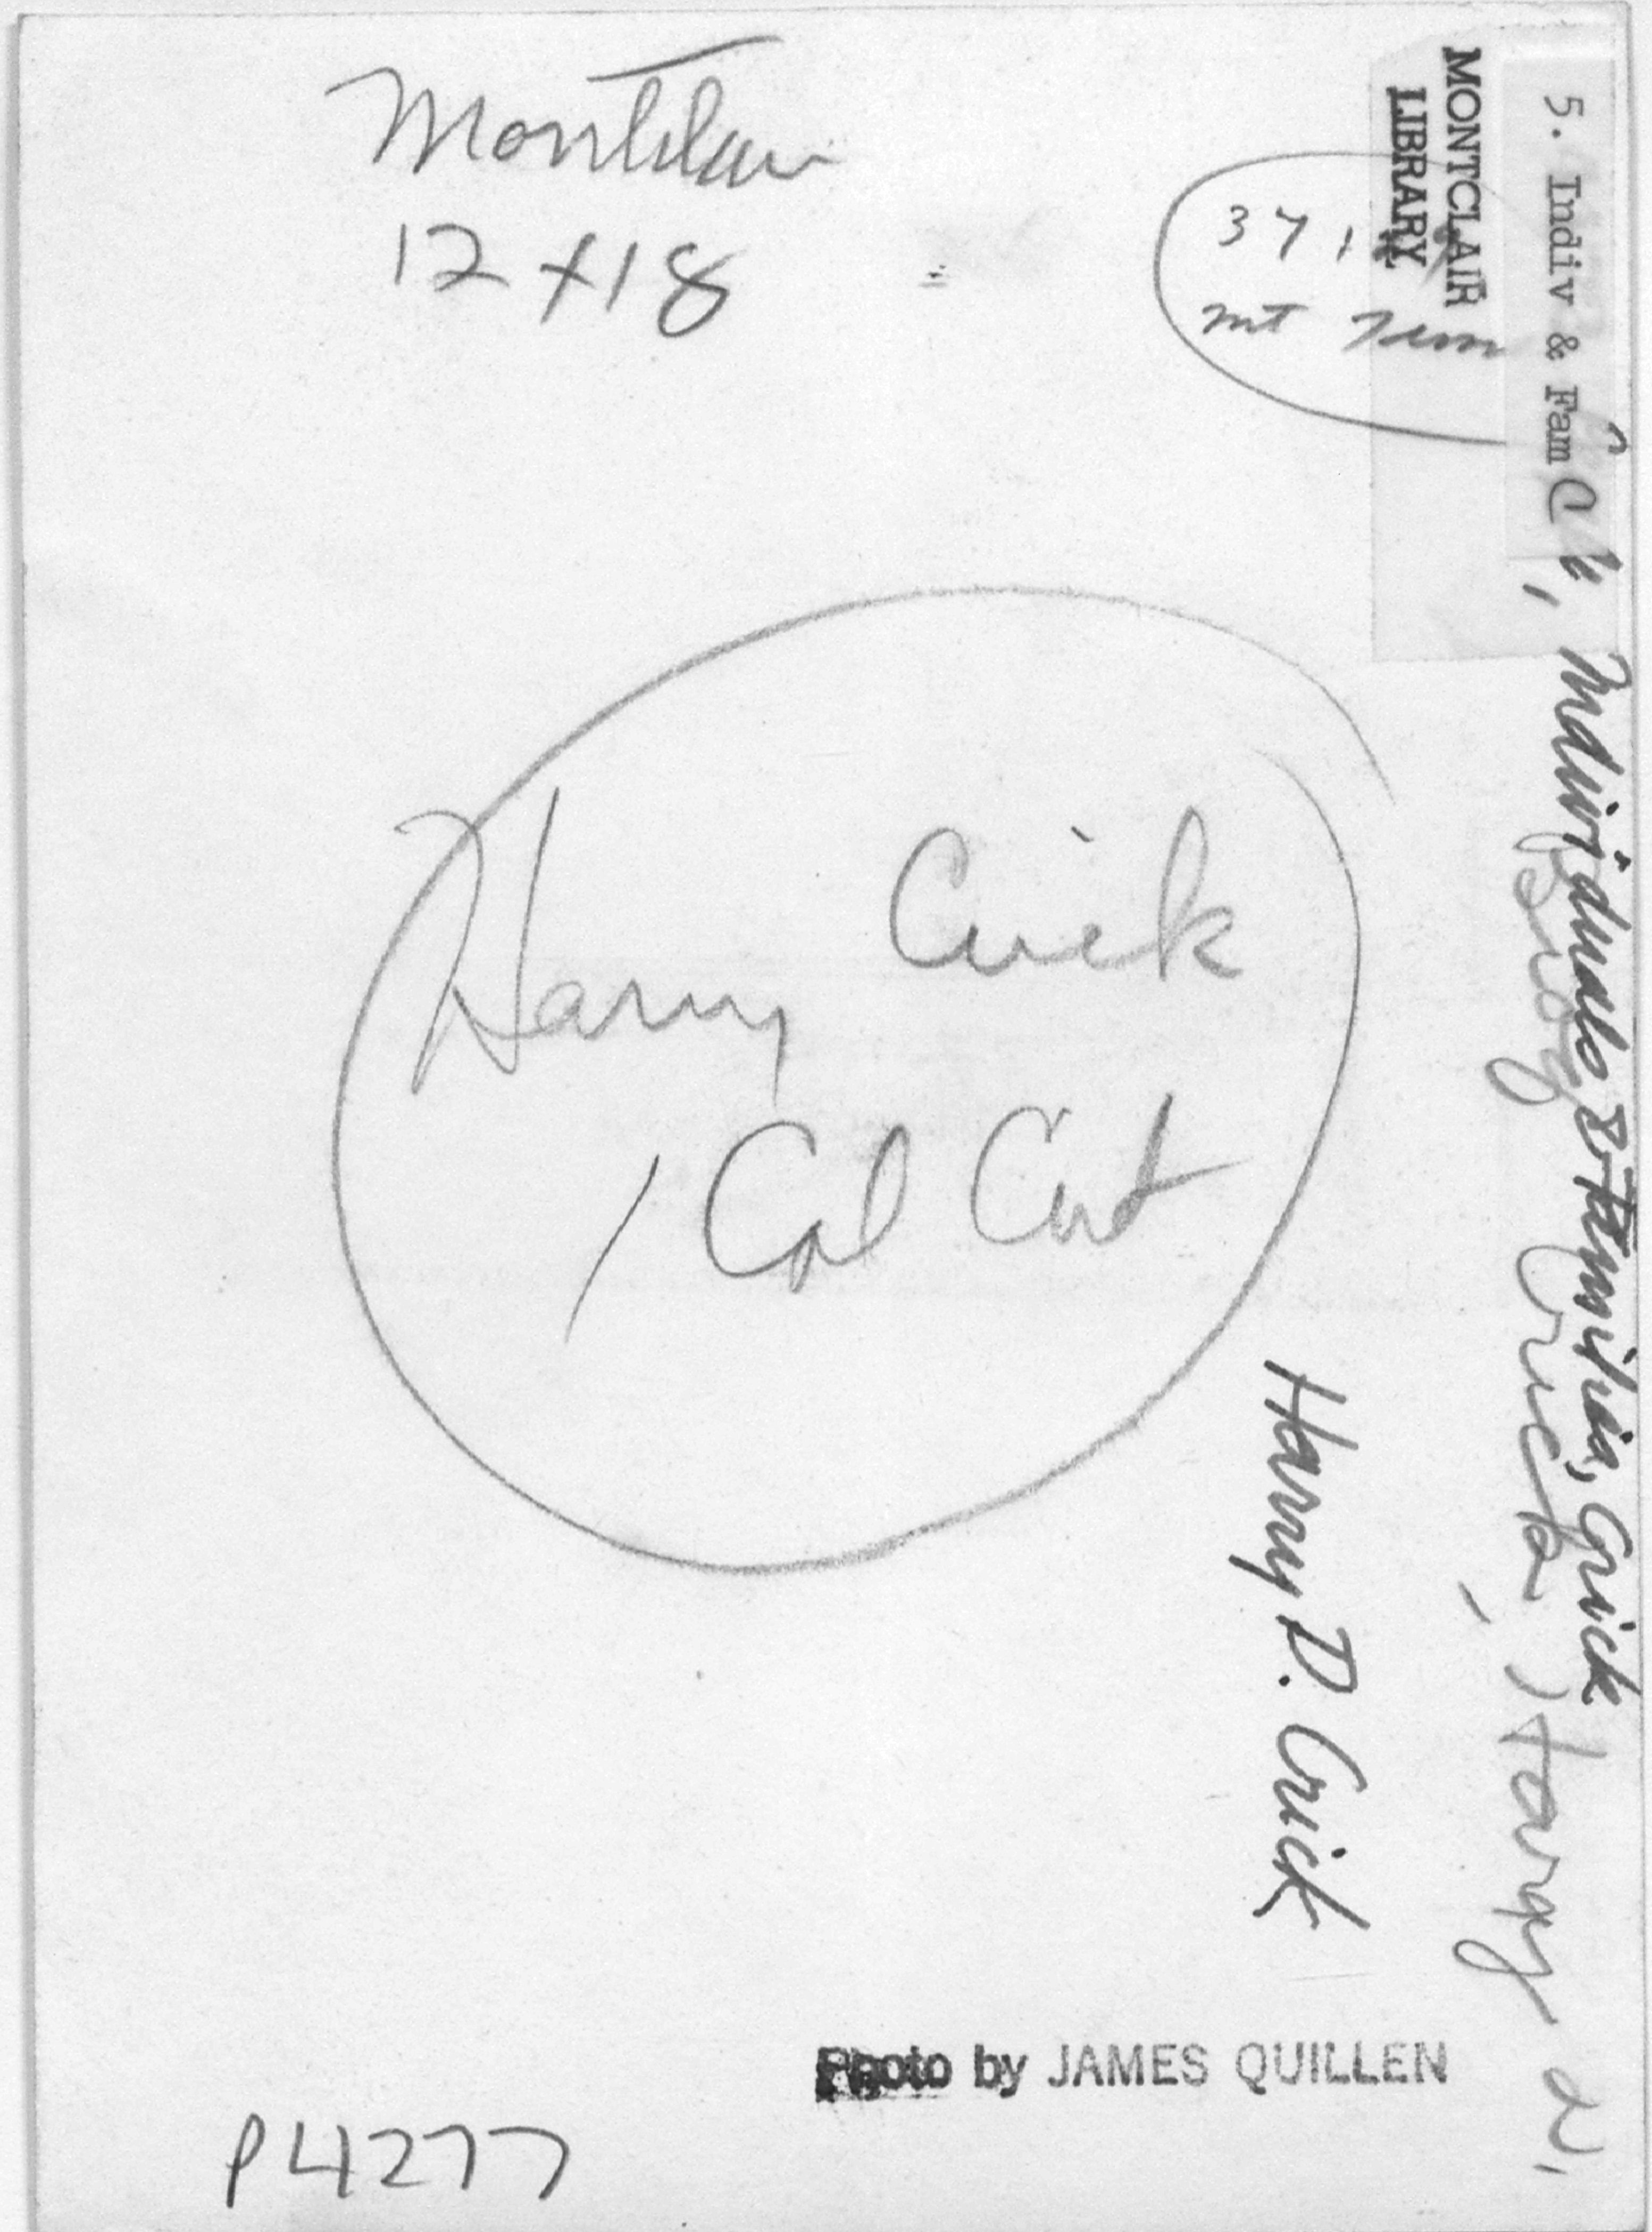 Montclair
12 x 18
MONTCLAIR
LIBRARY
371
mt
5. Indiv & Fam
Individuals & Families, Crick
Biog Crick, Harry D.
Harry Crick
1 Col Cut
Harry D. Crick
Photo by JAMES QUILLEN
P4277